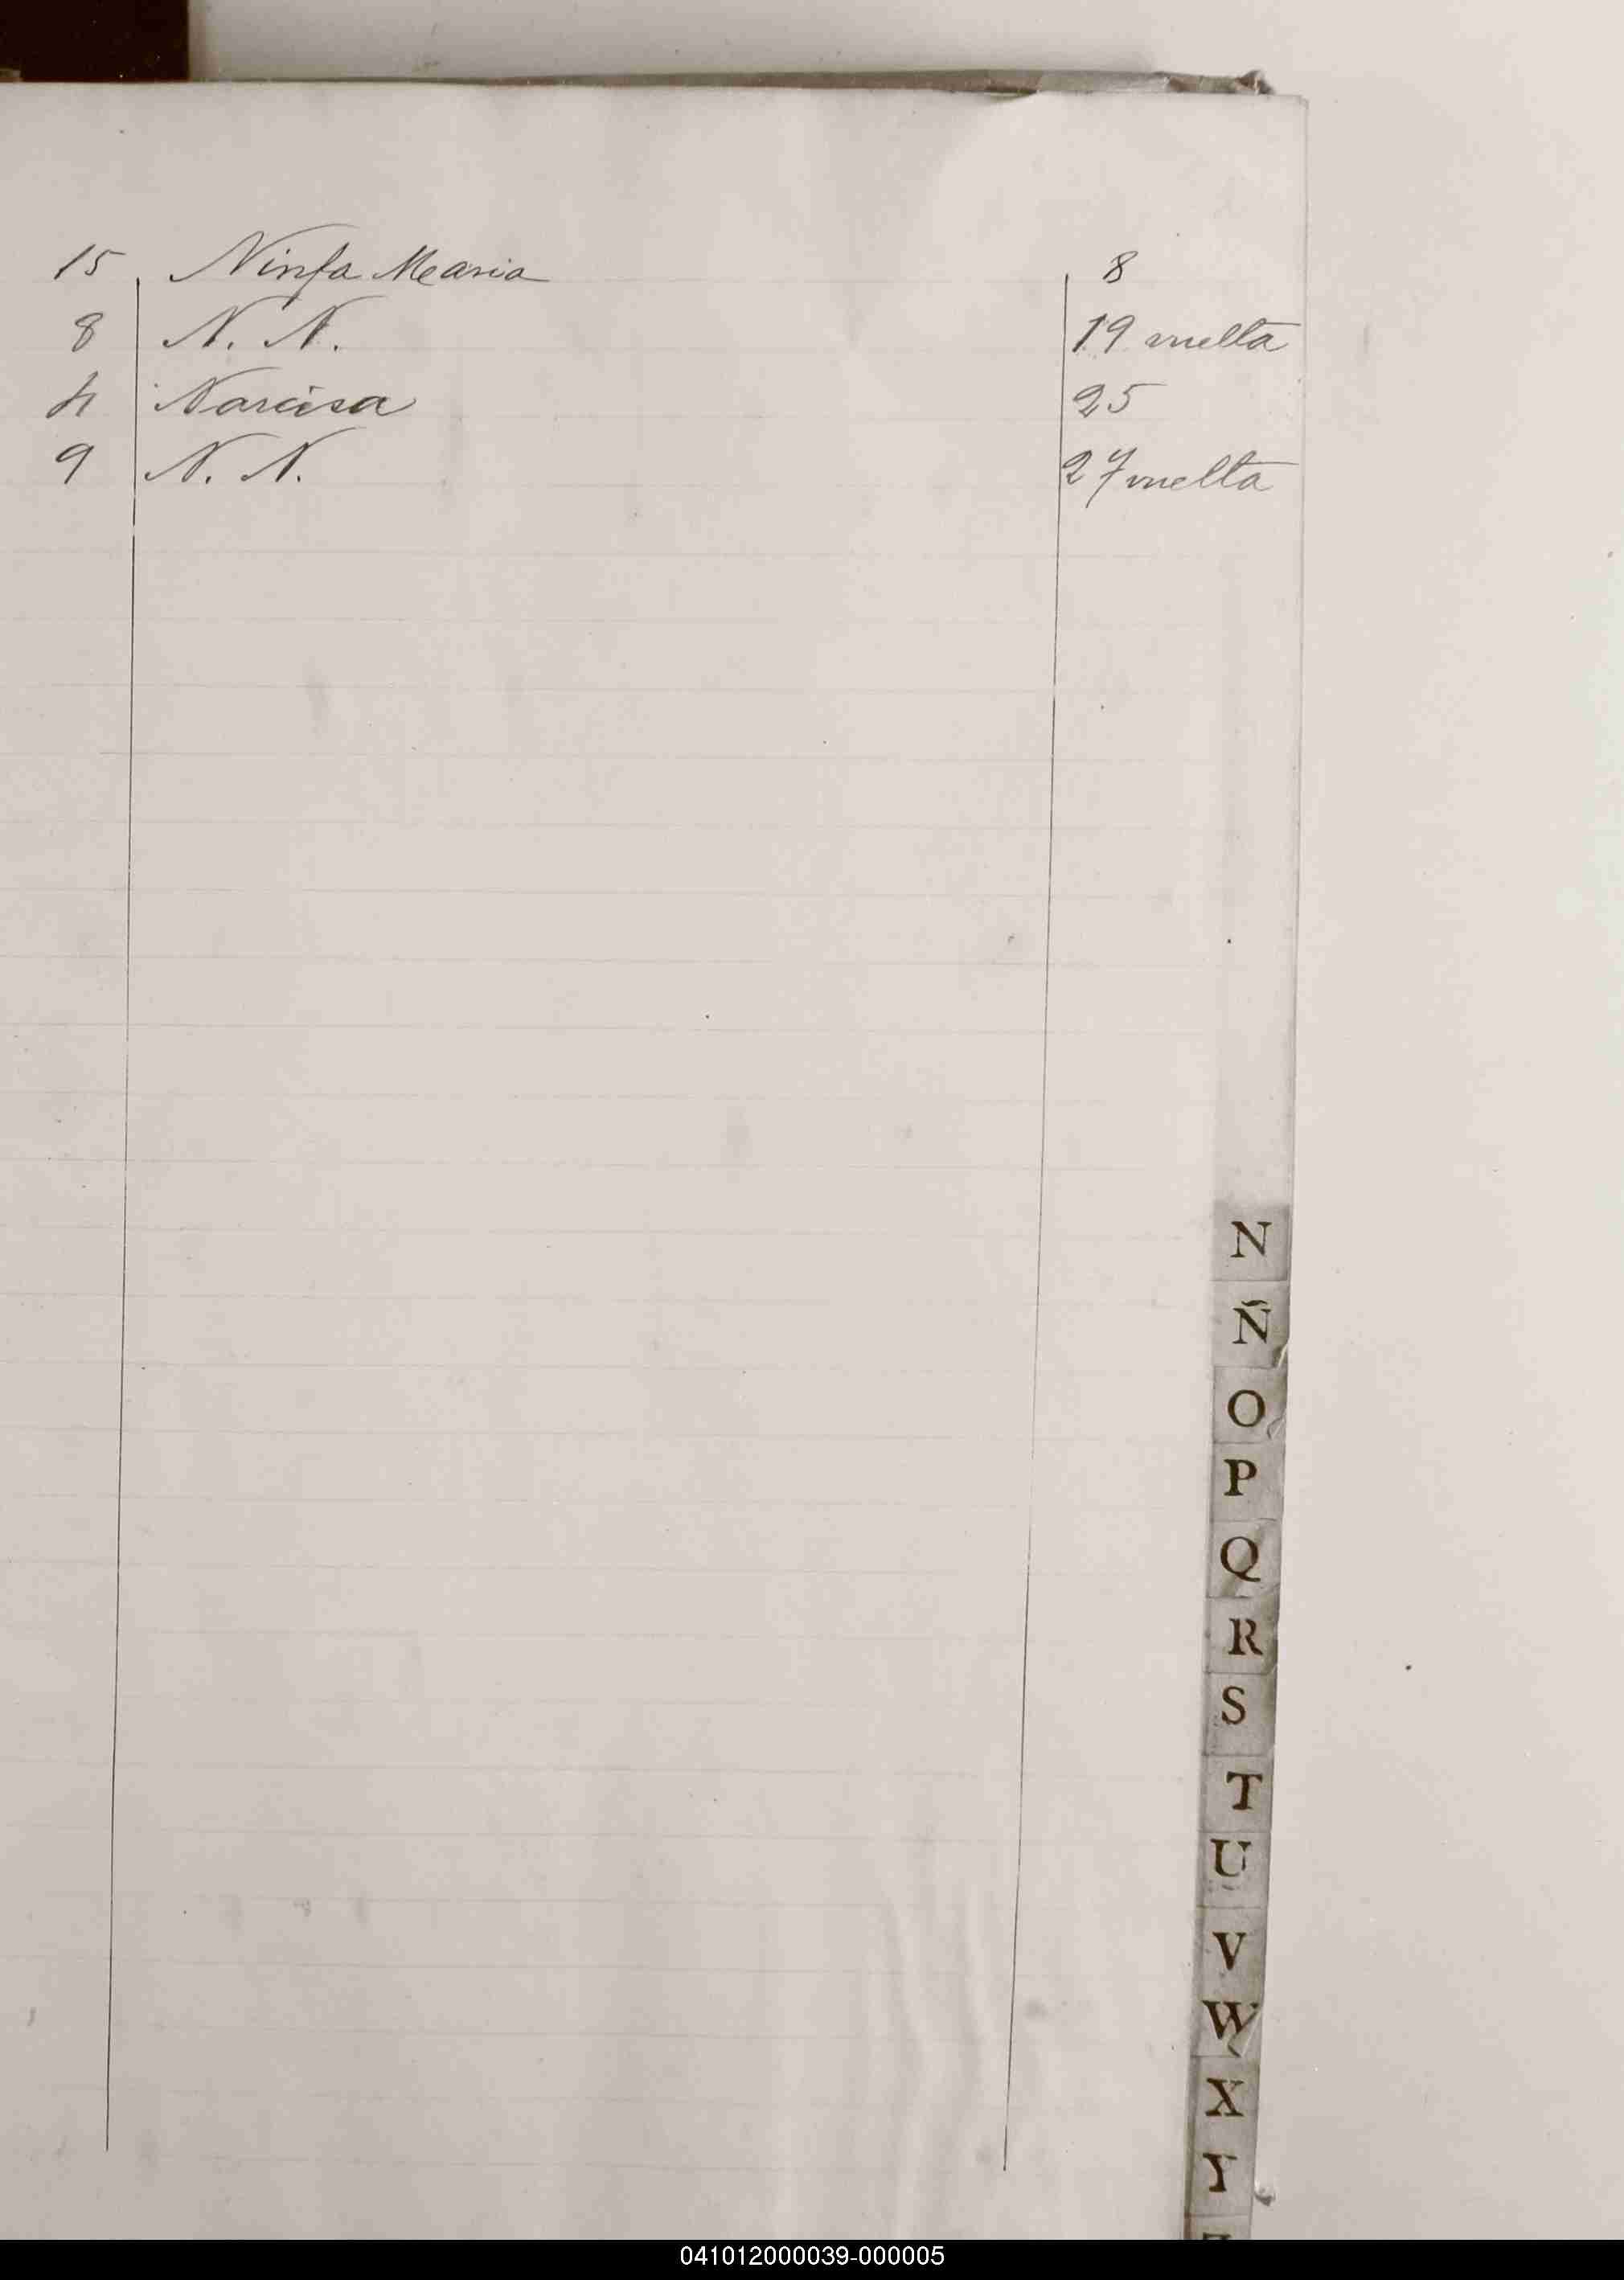 15 Ninfa Maria 8
8 N. N. 19 vuelta
4 Narcisa 25
9 N. N. 27 vuelta
N
Ñ
O
P
Q
R
S
T
U
V
W
X
Y
041012000039-000005